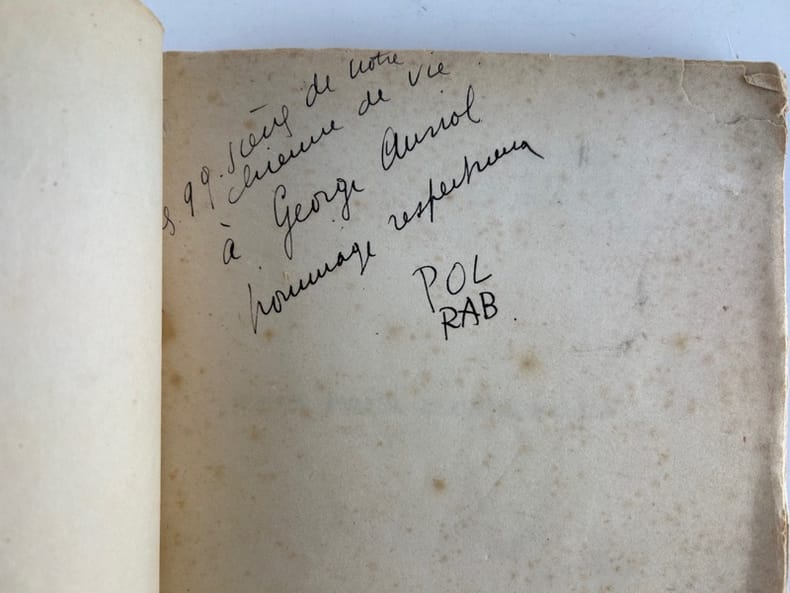 99. scèns de notre
chienne de vie
à George Auriol
hommage respectueux
POL
RAB.